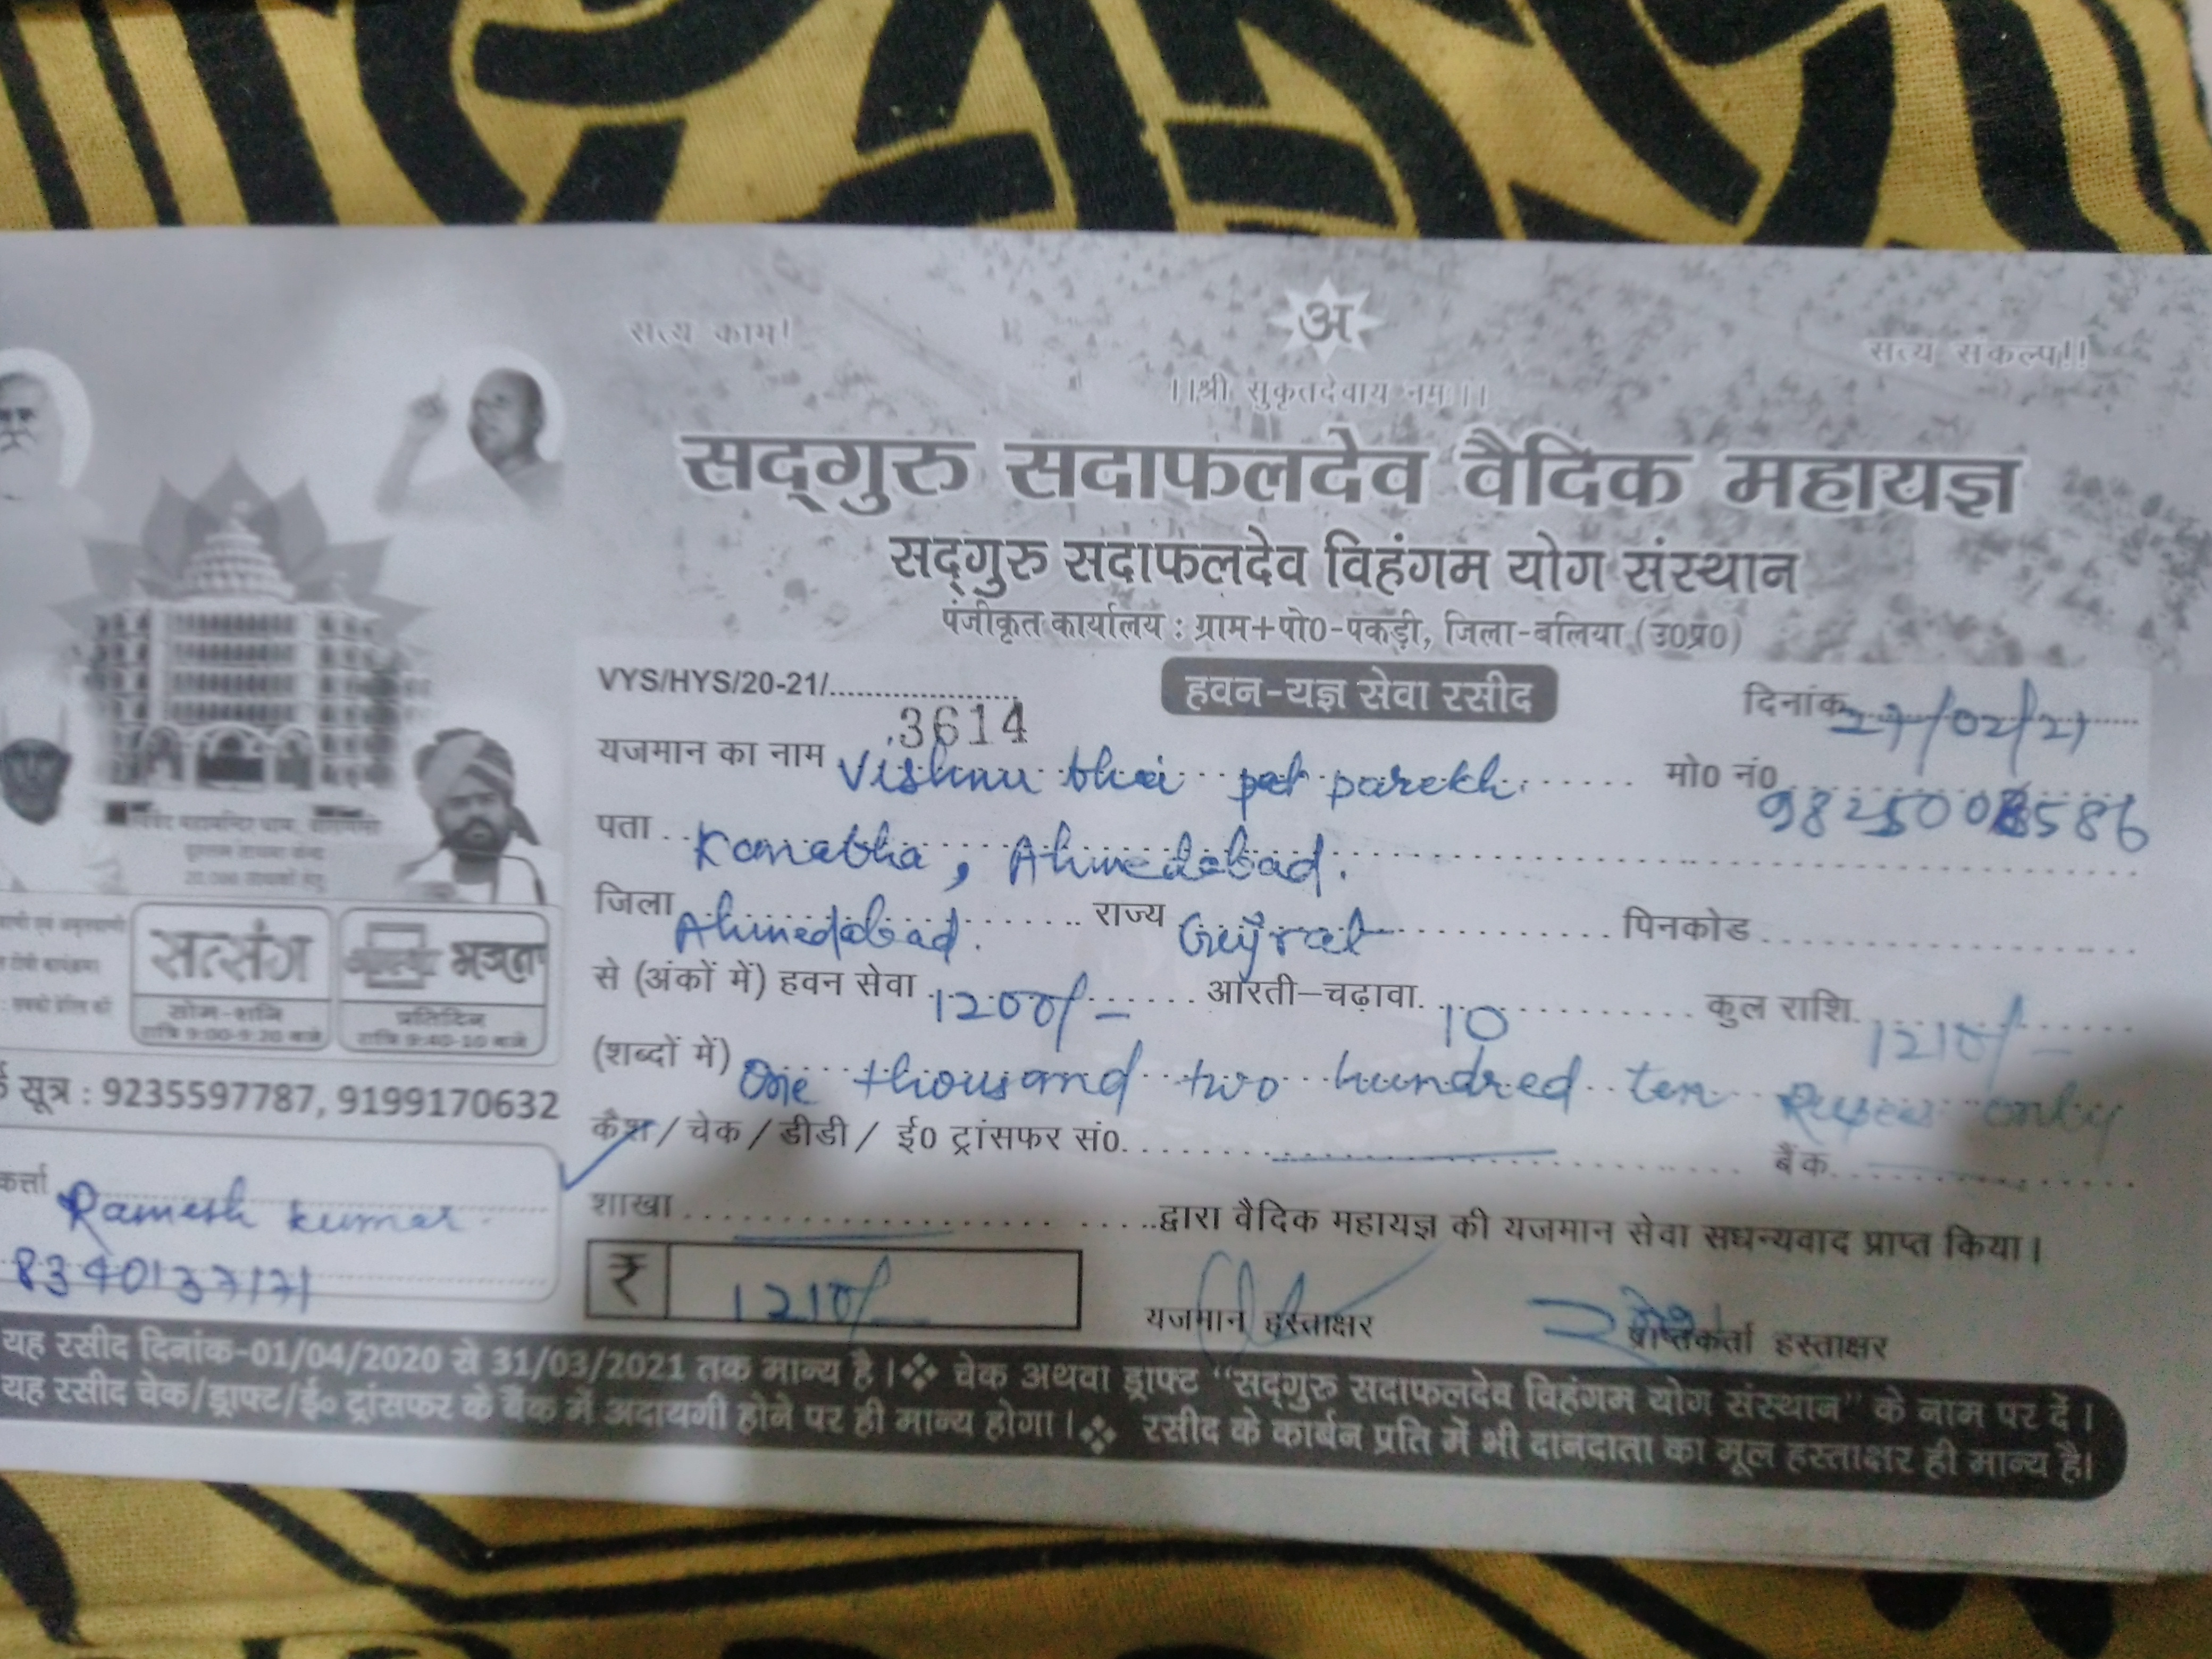 सत्य काम!
अ
सत्य संकल्प!!
।।श्री सुकृतदेवाय नमः।।
सद्गुरु सदाफलदेव वैदिक महायज्ञ
सद्गुरु सदाफलदेव विहंगम योग संस्थान
पंजीकृत कार्यालय : ग्राम+पो0-पकड़ी, जिला-बलिया (उ0प्र0)
VYS/HYS/20-21/..................... 3614
हवन-यज्ञ सेवा रसीद
दिनांक 27/02/21
यजमान का नाम Vishnu bhai parekh. मो0 नं0
पता Kanabha, Ahmedabad.
जिला Ahmedabad. राज्य Gujrat पिनकोड
से (अंकों में) हवन सेवा 1200/- आरती-चढ़ावा 10 कुल राशि 1210/-
(शब्दों में) One thousand two hundred ten Rupees only
कैश / चेक / डीडी / ई0 ट्रांसफर सं0 बैंक
शाखा द्वारा वैदिक महायज्ञ की यजमान सेवा सधन्यवाद प्राप्त किया।
₹ 1210/-
यजमान हस्ताक्षर
रमेश
प्राप्तकर्ता हस्ताक्षर
सत्संग
सोम-शनि
रात्रि 9:00-9:20 बजे
भजन
प्रतिदिन
रात्रि 9:40-10 बजे
सूत्र : 9235597787, 9199170632
कर्त्ता Ramesh kumar
8340137171
यह रसीद दिनांक-01/04/2020 से 31/03/2021 तक मान्य है। ❖ चेक अथवा ड्राफ्ट "सद्गुरु सदाफलदेव विहंगम योग संस्थान" के नाम पर दें।
यह रसीद चेक/ड्राफ्ट/ई० ट्रांसफर के बैंक में अदायगी होने पर ही मान्य होगा। ❖ रसीद के कार्बन प्रति में भी दानदाता का मूल हस्ताक्षर ही मान्य है।